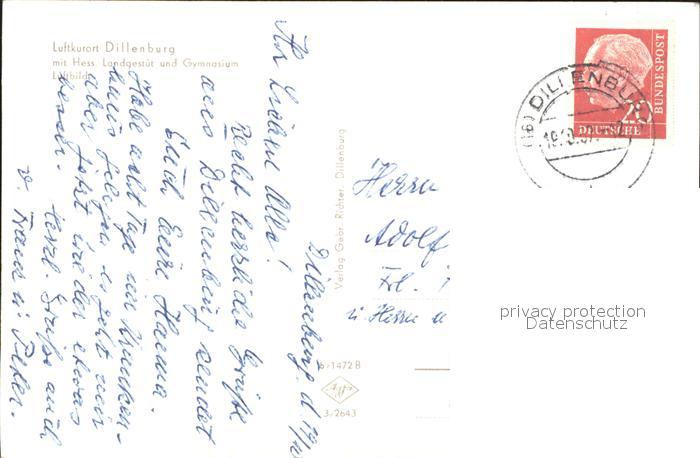 Luftkurort Dillenburg
mit Hess. Landgestüt und Gymnasium
Luftbild
Dillenburg, d.
Ihr Lieben Alle!
Recht herzliche Grüße
aus Dillenburg sendet
Euch Eure Hanna.
Habe acht Tage im Kranken-
haus gelegen, es geht mir
aber jetzt wieder etwas
besser. Herzl. Grüße auch
v. Franz u. Peter.
Verlag Gebr. Richter, Dillenburg
1472 B
3/2643
(16) DILLENBURG
20
DEUTSCHE
BUNDESPOST
Herrn
Adolf
Frl.
u. Herrn u
privacy protection
Datenschutz